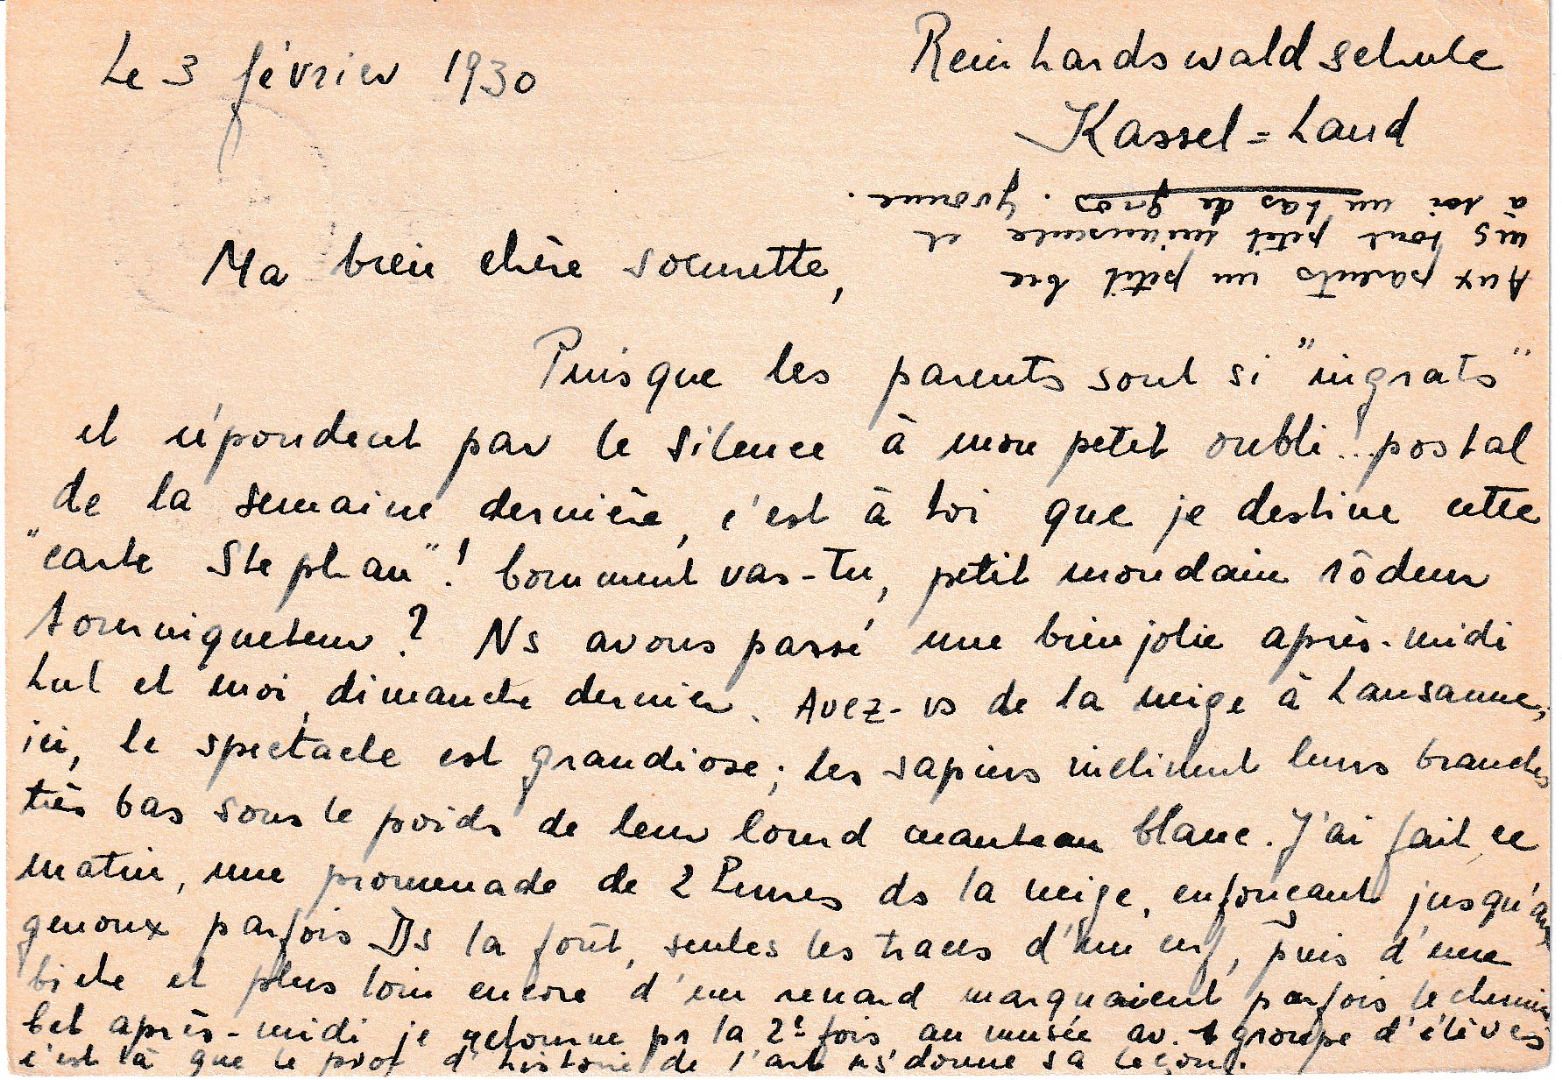 Le 3 février 1930
Reinhardswaldschule
Kassel=Land
Ma bien chère soeurette,
Puisque les parents sont si "ingrats"
et répondent par le silence à mon petit oubli...postal
de la semaine dernière, c'est à toi que je destine cette
"carte Stephan"! Comment vas-tu, petit mondain rôdeur
tourniqueteur? Ns avons passé une bien jolie après-midi
Lul et moi, dimanche dernier. Avez-vs de la neige à Lausanne,
ici, le spectacle est grandiose; les sapins inclinent leurs branches
très bas sous le poids de leur lourd manteau blanc. J'ai fait, ce
matin, une promenade de 2 heures ds la neige, enfonçant jusqu'aux
genoux parfois Ds la forêt, seules les traces d'un cerf, puis d'une
biche et plus loin encore d'un renard marquaient parfois le chemin
Cet après-midi je retourne pr la 2e fois au musée av. 1 groupe d'élèves
c'est là que le prof d'histoire de l'art ns donne sa leçon.
Aux parents un petit bec
ms tout petit minuscule et
à toi un tas de gros. Yvonne.